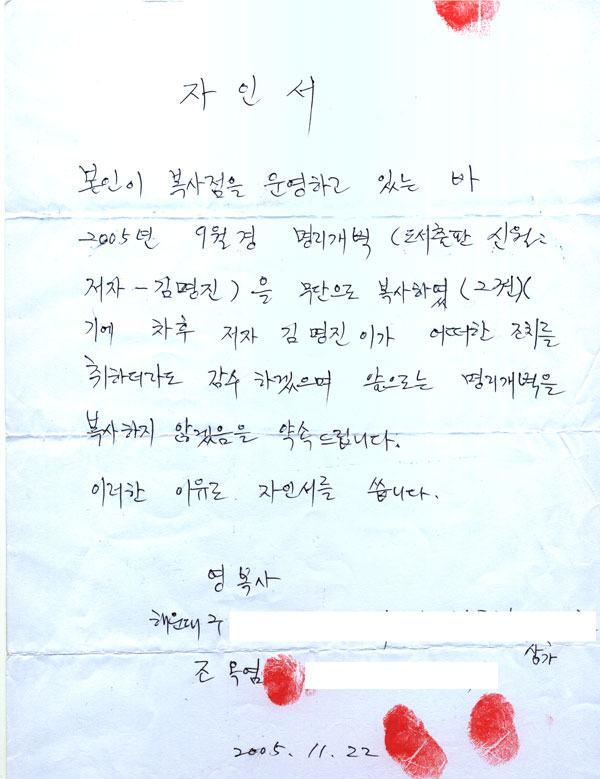 자인서
본인이 복사점을 운영하고 있는 바
2005년 9월경 명리개벽 (도서출판 신월:
저자 - 김명진) 을 무단으로 복사하였 (2권)(
기에 차후 저자 김명진이가 어떠한 조치를
취하더라도 감수 하겠으며 앞으로는 명리개벽을
복사하지 않겠음을 약속드립니다.
이러한 이유로 자인서를 씁니다.
영 복사
해운대구
상가
조 옥염
2005. 11. 22